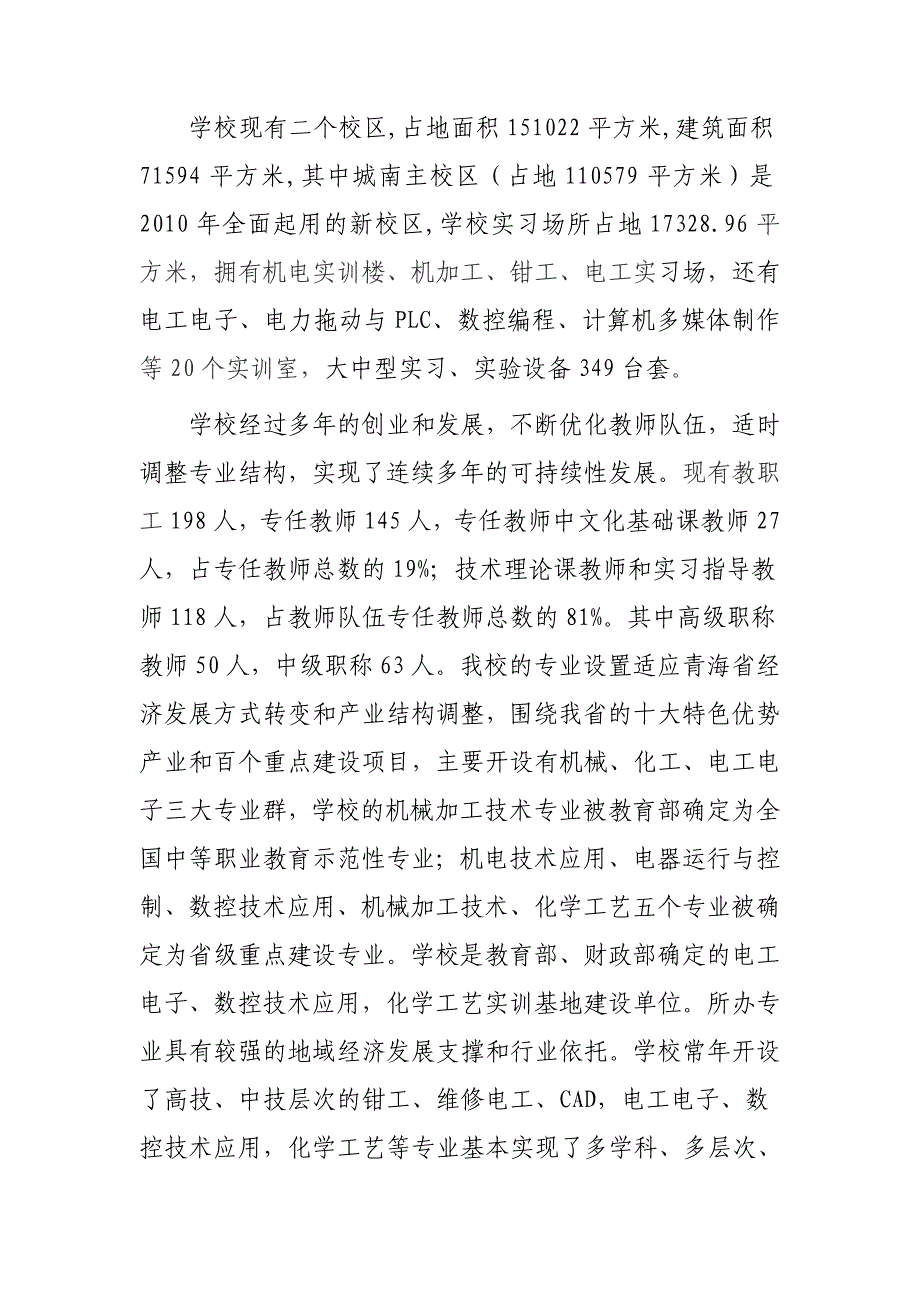 学校现有二个校区,占地面积 151022 平方米,建筑面积
71594 平方米,其中城南主校区（占地 110579 平方米）是
2010 年全面起用的新校区,学校实习场所占地 17328.96 平
方米，拥有机电实训楼、机加工、钳工、电工实习场，还有
电工电子、电力拖动与 PLC、数控编程、计算机多媒体制作
等 20 个实训室，大中型实习、实验设备 349 台套。
学校经过多年的创业和发展，不断优化教师队伍，适时
调整专业结构，实现了连续多年的可持续性发展。现有教职
工 198 人，专任教师 145 人，专任教师中文化基础课教师 27
人，占专任教师总数的 19%；技术理论课教师和实习指导教
师 118 人，占教师队伍专任教师总数的 81%。其中高级职称
教师 50 人，中级职称 63 人。我校的专业设置适应青海省经
济发展方式转变和产业结构调整，围绕我省的十大特色优势
产业和百个重点建设项目，主要开设有机械、化工、电工电
子三大专业群，学校的机械加工技术专业被教育部确定为全
国中等职业教育示范性专业；机电技术应用、电器运行与控
制、数控技术应用、机械加工技术、化学工艺五个专业被确
定为省级重点建设专业。学校是教育部、财政部确定的电工
电子、数控技术应用，化学工艺实训基地建设单位。所办专
业具有较强的地域经济发展支撑和行业依托。学校常年开设
了高技、中技层次的钳工、维修电工、CAD，电工电子、数
控技术应用，化学工艺等专业基本实现了多学科、多层次、